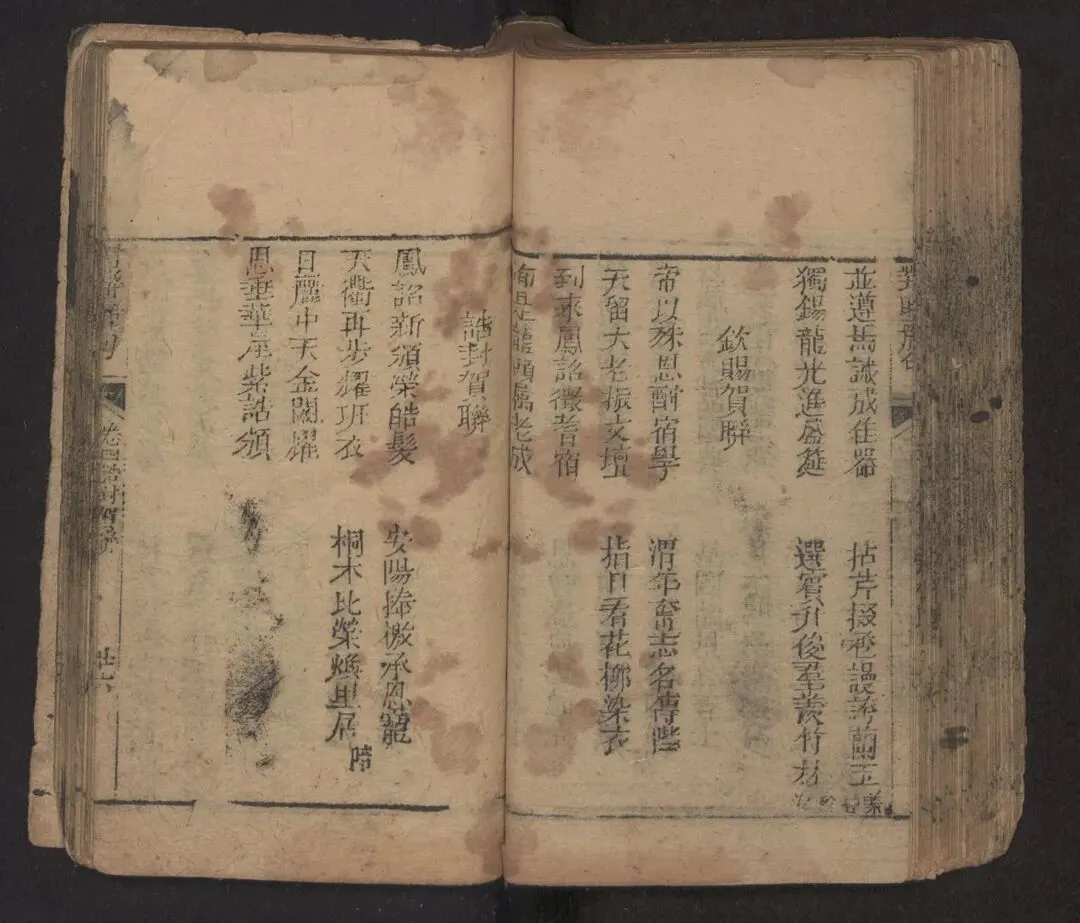 並遵馬誠成佳器
拈芹掇
蘭玉
獨錫龍光進盛筵
選賓升後羣羨竹
欽賜賀聯
帝以殊恩酧宿學
渭年奮志名傳
天留大老振文壇
指日看花柳染衣
到來鳳詔徵耆宿
龍頭屬老成
誥封賀聯
鳳詔新頒榮皓髮
安陽捧檄承恩寵
天衢再步耀班衣
桐木比榮煥里居
日麗中天金闕耀
恩垂華屋紫誥頒
卷四誥封賀聯
廿六